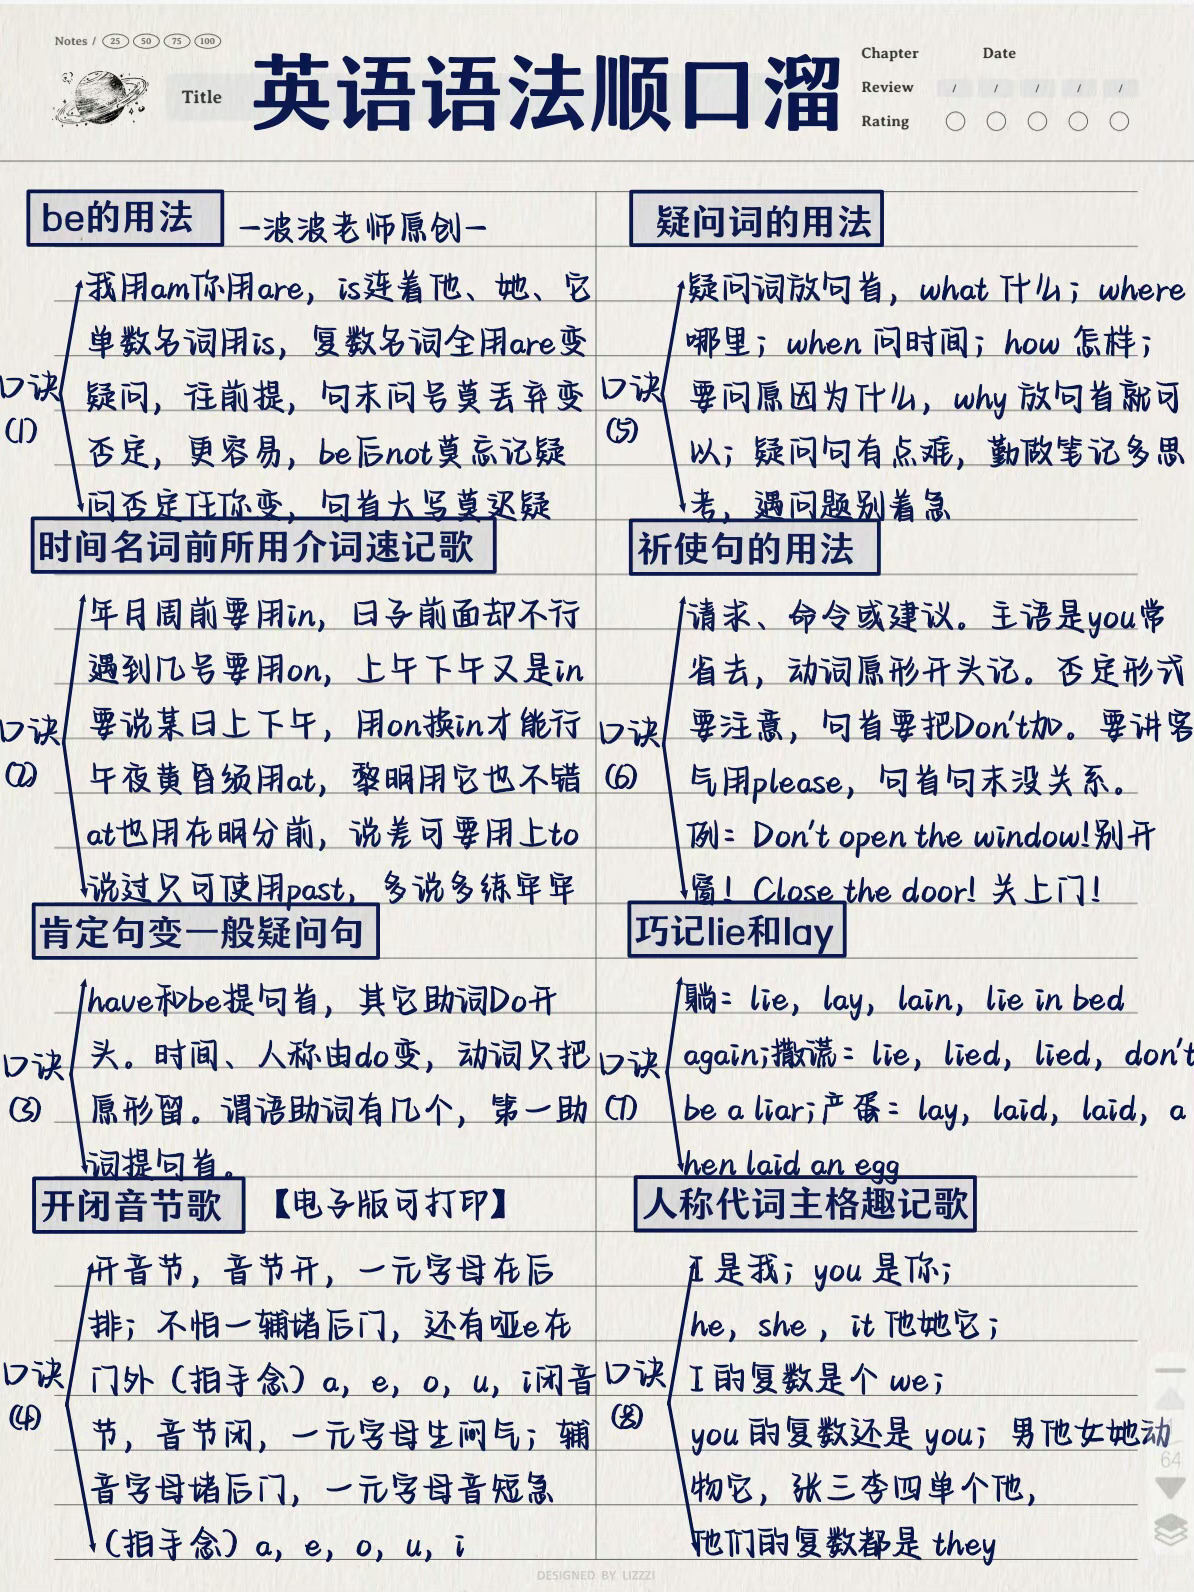 Notes / 25 50 75 100
Title
英语语法顺口溜
Chapter Date
Review / / / / /
Rating
be的用法
—波波老师原创—
口诀(1)
我用am你用are，is连着他、她、它
单数名词用is，复数名词全用are变
疑问，往前提，句末问号莫丢弃变
否定，更容易，be后not莫忘记疑
问否定任你变，句首大写莫迟疑
时间名词前所用介词速记歌
口诀(2)
年月周前要用in，日子前面却不行
遇到几号要用on，上午下午又是in
要说某日上下午，用on换in才能行
午夜黄昏须用at，黎明用它也不错
at也用在明分前，说差可要用上to
说过只可使用past，多说多练牢牢
肯定句变一般疑问句
口诀(3)
have和be提句首，其它助词Do开
头。时间、人称由do变，动词只把
原形留。谓语助词有几个，第一助
词提句首。
开闭音节歌
【电子版可打印】
口诀(4)
开音节，音节开，一元字母在后
排；不怕一辅堵后门，还有哑e在
门外（拍手念）a，e，o，u，i闭音
节，音节闭，一元字母生闷气；辅
音字母堵后门，一元字母音短急
（拍手念）a，e，o，u，i
疑问词的用法
口诀(5)
疑问词放句首，what 什么；where
哪里；when 问时间；how 怎样；
要问原因为什么，why 放句首就可
以；疑问句有点难，勤做笔记多思
考，遇问题别着急
祈使句的用法
口诀(6)
请求、命令或建议。主语是you常
省去，动词原形开头记。否定形式
要注意，句首要把Don't加。要讲客
气用please，句首句末没关系。
例：Don't open the window!别开
窗！Close the door! 关上门！
巧记lie和lay
口诀(7)
躺：lie，lay，lain，lie in bed
again;撒谎：lie，lied，lied，don't
be a liar;产蛋：lay，laid，laid，a
hen laid an egg
人称代词主格趣记歌
口诀(8)
I 是我；you 是你；
he，she ，it 他她它；
I 的复数是个 we；
you 的复数还是 you；男他女她动
物它，张三李四单个他，
他们的复数都是 they
64
DESIGNED BY LIZZZI